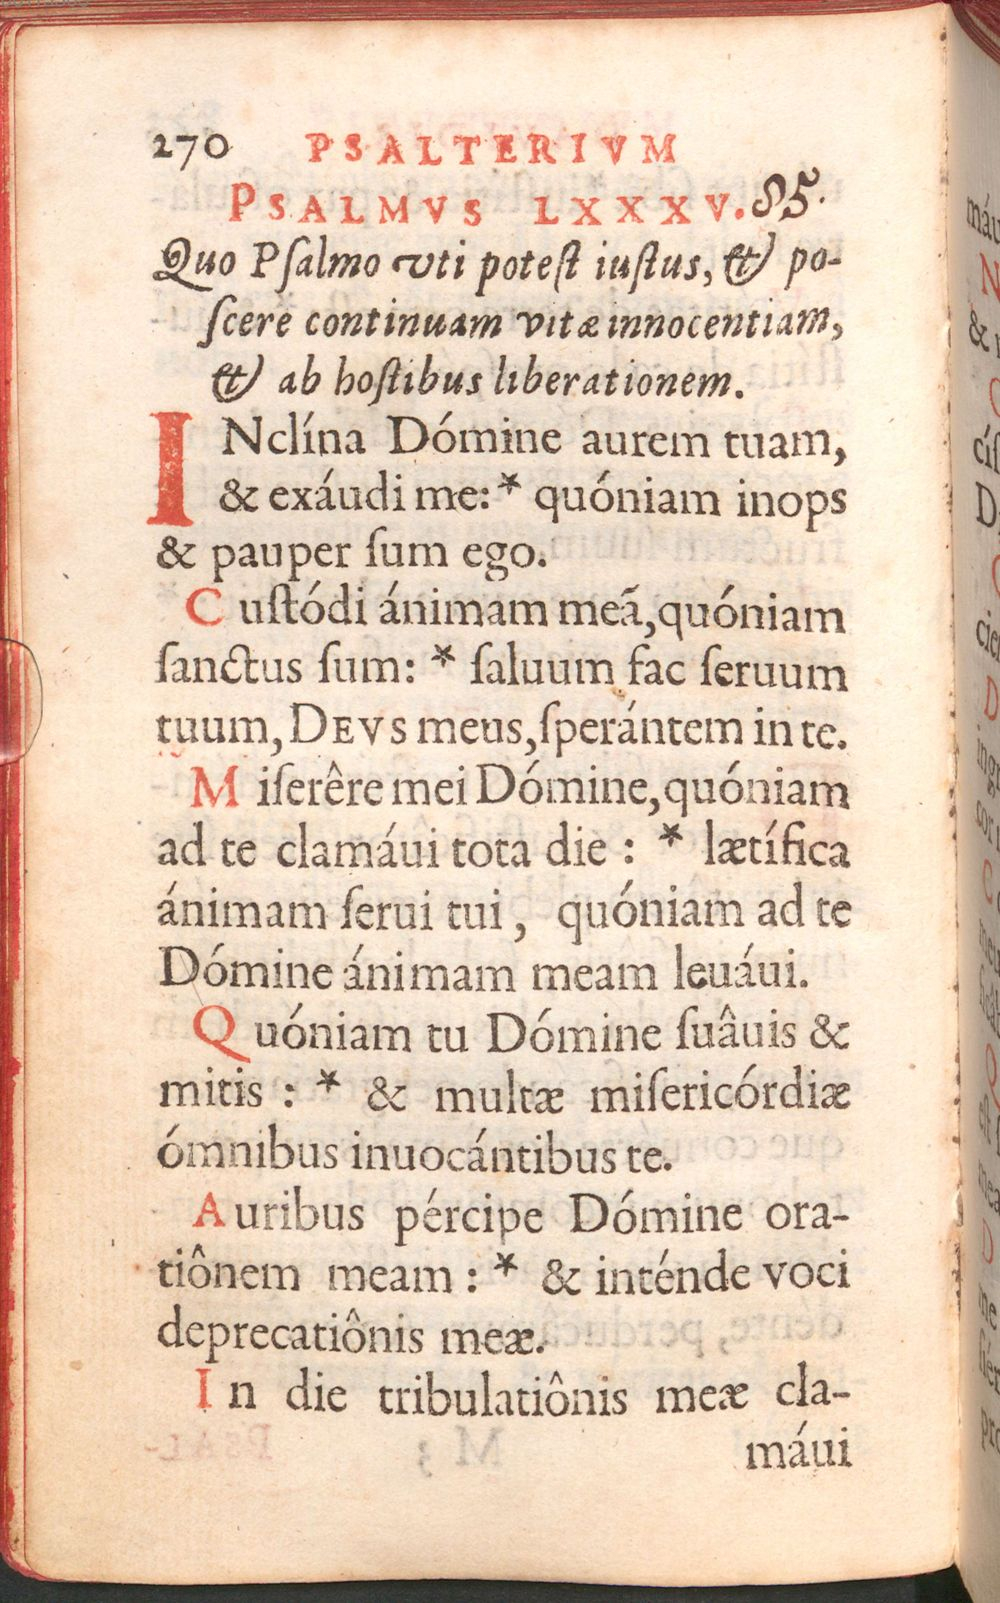 270 PSALTERIVM
PSALMVS LXXXV. 85.
Quo Pſalmo vti poteſt iuſtus, & po-
ſcere continuam vitæ innocentiam,
& ab hoſtibus liberationem.
INclína Dómine aurem tuam,
& exáudi me: * quóniam inops
& pauper ſum ego.
Cuſtódi ánimam meã, quóniam
ſanctus ſum: * ſaluum fac ſeruum
tuum, DEVS meus, ſperántem in te.
Miſerêre mei Dómine, quóniam
ad te clamáui tota die : * lætífica
ánimam ſerui tui , quóniam ad te
Dómine ánimam meam leuáui.
Quóniam tu Dómine ſuâuis &
mitis : * & multæ miſericórdiæ
ómnibus inuocántibus te.
Auribus pércipe Dómine ora-
tiônem meam : * & inténde voci
deprecatiônis meæ.
In die tribulatiônis meæ cla-
máui